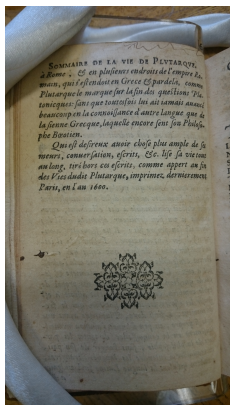 SOMMAIRE DE LA VIE DE PLVTARQVE,
à Rome, & en plusieurs endroits de l'empire Ro-
main, qui s'estendoit en Grece & par delà, comme
Plutarque le marque sur la fin des questions Pla-
toniques: sans que toutesfois lui ait iamais auancé
beaucoup en la connoissance d'autre langue que de
la sienne Grecque, laquelle encore sent son Philoso-
phe Bœotien.
Qui est desireux auoir chose plus ample de ses
meurs, conuersation, escrits, &c. lise sa vie tout
au long, tiré hors ses escrits, comme appert au fin
des Vies dudit Plutarque, imprimez dernierement à
Paris, en l'an 1600.